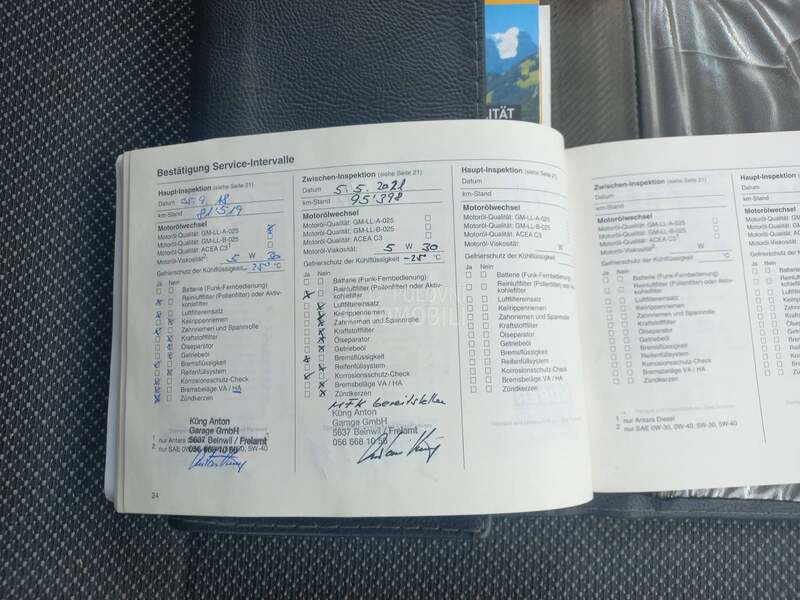 ITÄT
Bestätigung Service-Intervalle
Haupt-Inspektion (siehe Seite 21)
Datum
km-Stand 81'519
Motorölwechsel
Motoröl-Qualität: GM-LL-A-025
Motoröl-Qualität: GM-LL-B-025
Motoröl-Qualität: ACEA C3
Motoröl-Viskosität: 5 W 30
Gefrierschutz der Kühlflüssigkeit -25° °C
Ja Nein
Batterie (Funk-Fernbedienung)
Reinluftfilter (Pollenfilter) oder Aktiv-
kohlefilter
Luftfiltereinsatz
Keilrippenriemen
Zahnriemen und Spannrolle
Kraftstofffilter
Ölseparator
Getriebeöl
Bremsflüssigkeit
Reifenfüllsystem
Korrosionsschutz-Check
Bremsbeläge VA / HA
Zündkerzen
Küng Anton
Garage GmbH
5637 Beinwil / Freiamt
056 668 10 56
1 nur Antara
2 nur SAE 0W
24
Zwischen-Inspektion (siehe Seite 21)
Datum 5.5.2021
km-Stand 95'398
Motorölwechsel
Motoröl-Qualität: GM-LL-A-025
Motoröl-Qualität: GM-LL-B-025
Motoröl-Qualität: ACEA C3
Motoröl-Viskosität: 5 W 30
Gefrierschutz der Kühlflüssigkeit -25° °C
Ja Nein
Batterie (Funk-Fernbedienung)
Reinluftfilter (Pollenfilter) oder Aktiv-
kohlefilter
Luftfiltereinsatz
Keilrippenriemen
Zahnriemen und Spannrolle
Kraftstofffilter
Ölseparator
Getriebeöl
Bremsflüssigkeit
Reifenfüllsystem
Korrosionsschutz-Check
Bremsbeläge VA / HA
Zündkerzen
MFK bereitstellen
Küng Anton
Garage GmbH
5637 Beinwil / Freiamt
056 668 10 56
Haupt-Inspektion (siehe Seite 21)
Datum
km-Stand
Motorölwechsel
Motoröl-Qualität: GM-LL-A-025
Motoröl-Qualität: GM-LL-B-025
Motoröl-Qualität: ACEA C3
Motoröl-Viskosität: W
Gefrierschutz der Kühlflüssigkeit °C
Ja Nein
Batterie (Funk-Fernbedienung)
Reinluftfilter (Pollenfilter) oder Aktiv-
kohlefilter
Luftfiltereinsatz
Keilrippenriemen
Zahnriemen und Spannrolle
Kraftstofffilter
Ölseparator
Getriebeöl
Bremsflüssigkeit
Reifenfüllsystem
Korrosionsschutz-Check
Bremsbeläge VA / HA
Zündkerzen
Zwischen-Inspektion (siehe Seite 21)
Datum
km-Stand
Motorölwechsel
Motoröl-Qualität: GM-LL-A-025
Motoröl-Qualität: GM-LL-B-025
Motoröl-Qualität: ACEA C3
Motoröl-Viskosität W
Gefrierschutz der Kühlflüssigkeit °C
Ja Nein
Batterie (Funk-Fernbedienung)
Reinluftfilter (Pollenfilter) oder Aktiv-
kohlefilter
Luftfiltereinsatz
Keilrippenriemen
Zahnriemen und Spannrolle
Kraftstofffilter
Ölseparator
Getriebeöl
Bremsflüssigkeit
Reifenfüllsystem
Korrosionsschutz-Check
Bremsbeläge VA / HA
Zündkerzen
1 nur Antara Diesel
2 nur SAE 0W-30, 0W-40, 5W-30, 5W-40